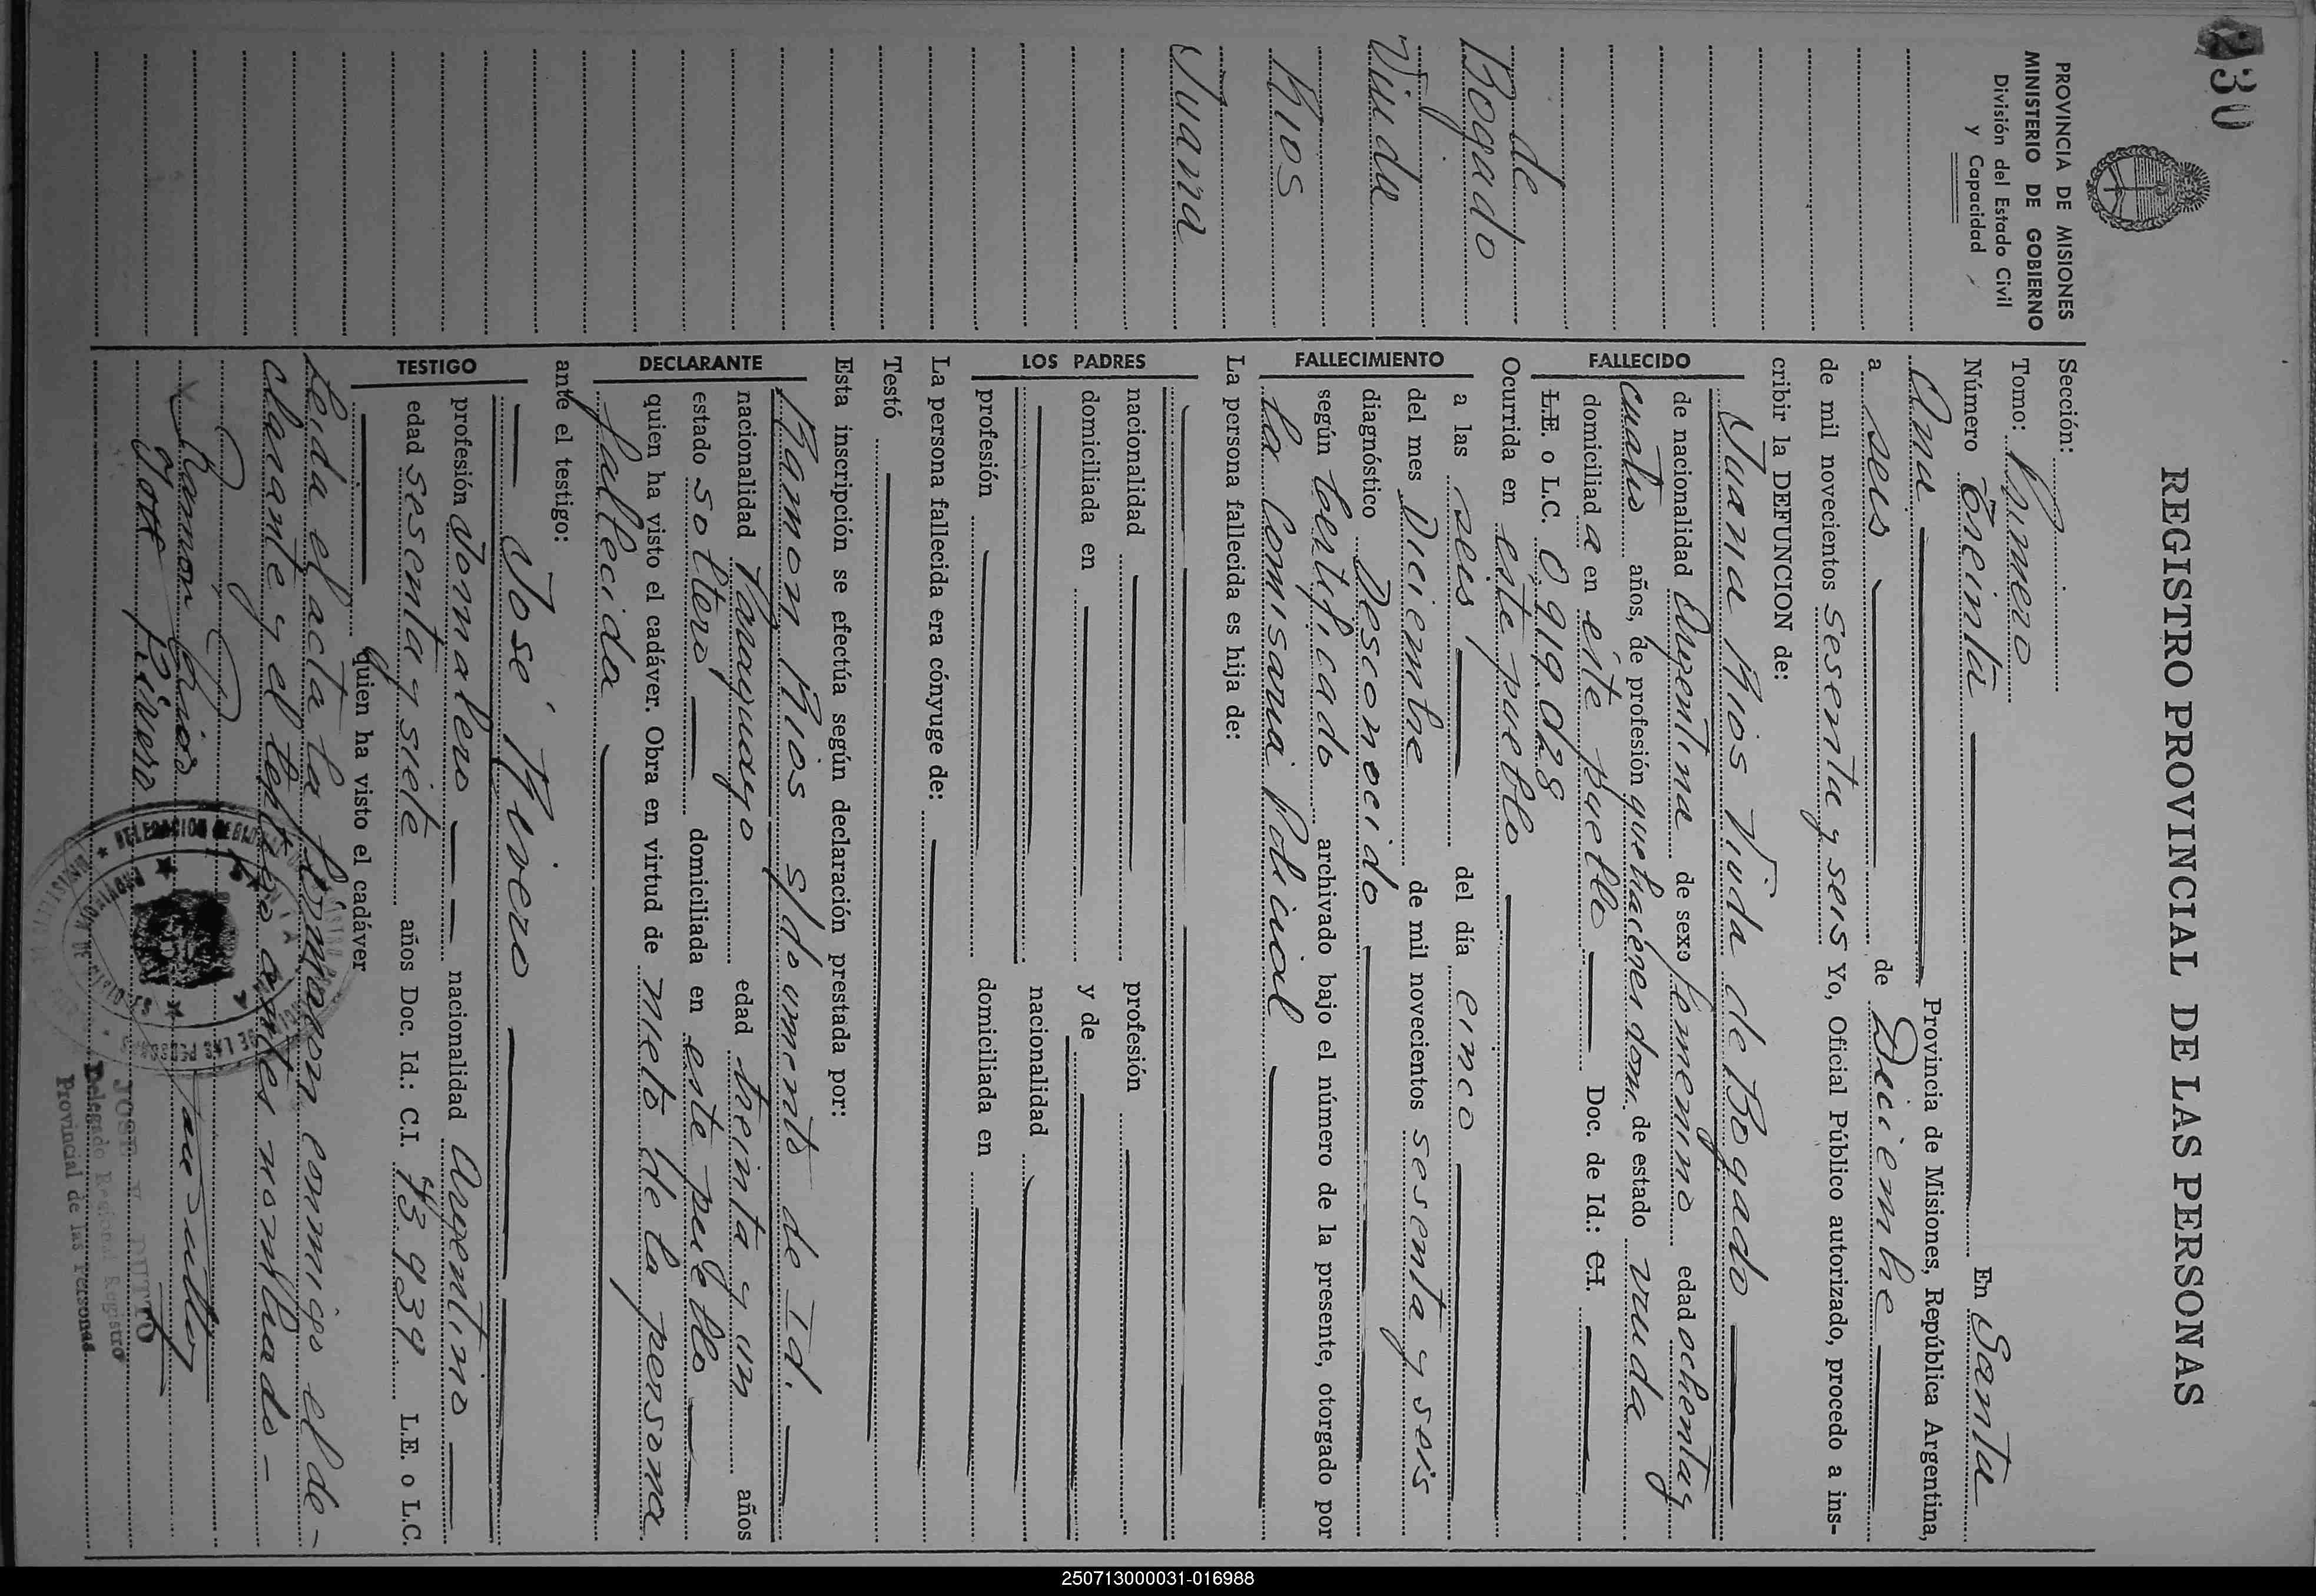 230
PROVINCIA DE MISIONES
MINISTERIO DE GOBIERNO
División del Estado Civil
y Capacidad
de
Bogado
Viuda
Rios
Juana
REGISTRO PROVINCIAL DE LAS PERSONAS
Sección:
Tomo: Primero
Número Treinta En Santa
Ana Provincia de Misiones, República Argentina,
a seis de Diciembre
de mil novecientos sesenta y seis Yo, Oficial Público autorizado, procedo a ins-
cribir la DEFUNCION de:
FALLECIDO
Juana Rios Viuda de Bogado
de nacionalidad Argentina de sexo femenino edad ochenta y
cuatro años, de profesión quehaceres dom. de estado viuda
domiciliad a en éste pueblo Doc. de Id.: C.I.
L.E. o L.C. 0 919 028
Ocurrida en este pueblo
FALLECIMIENTO
a las seis del día cinco
del mes Diciembre de mil novecientos sesenta y seis
diagnóstico Desconocido
según Certificado archivado bajo el número de la presente, otorgado por
la Comisaria Policial
La persona fallecida es hija de:
LOS PADRES
nacionalidad profesión
domiciliada en y de
nacionalidad
profesión domiciliada en
La persona fallecida era cónyuge de:
Testó
Esta inscripción se efectúa según declaración prestada por:
DECLARANTE
Ramon Rios s/documento de Id.
nacionalidad Paraguayo edad treinta y un años
estado soltero domiciliada en este pueblo
quien ha visto el cadáver. Obra en virtud de nieto de la persona
fallecida
ante el testigo:
TESTIGO
José Rivero
profesión Jornalero nacionalidad Argentino
edad sesenta y siete años Doc. Id.: C.I. 73.939 L.E. o L.C.
quien ha visto el cadáver
Leida el acta la firmaron conmigo el de-
clarante y el testigo antes nombrado-
Ramon Rios
José Rivero
DELEGACION
DE LAS PERSONAS
JOSE DUTTO
Delegado Regional Registro
Provincial de las Personas
250713000031-016988